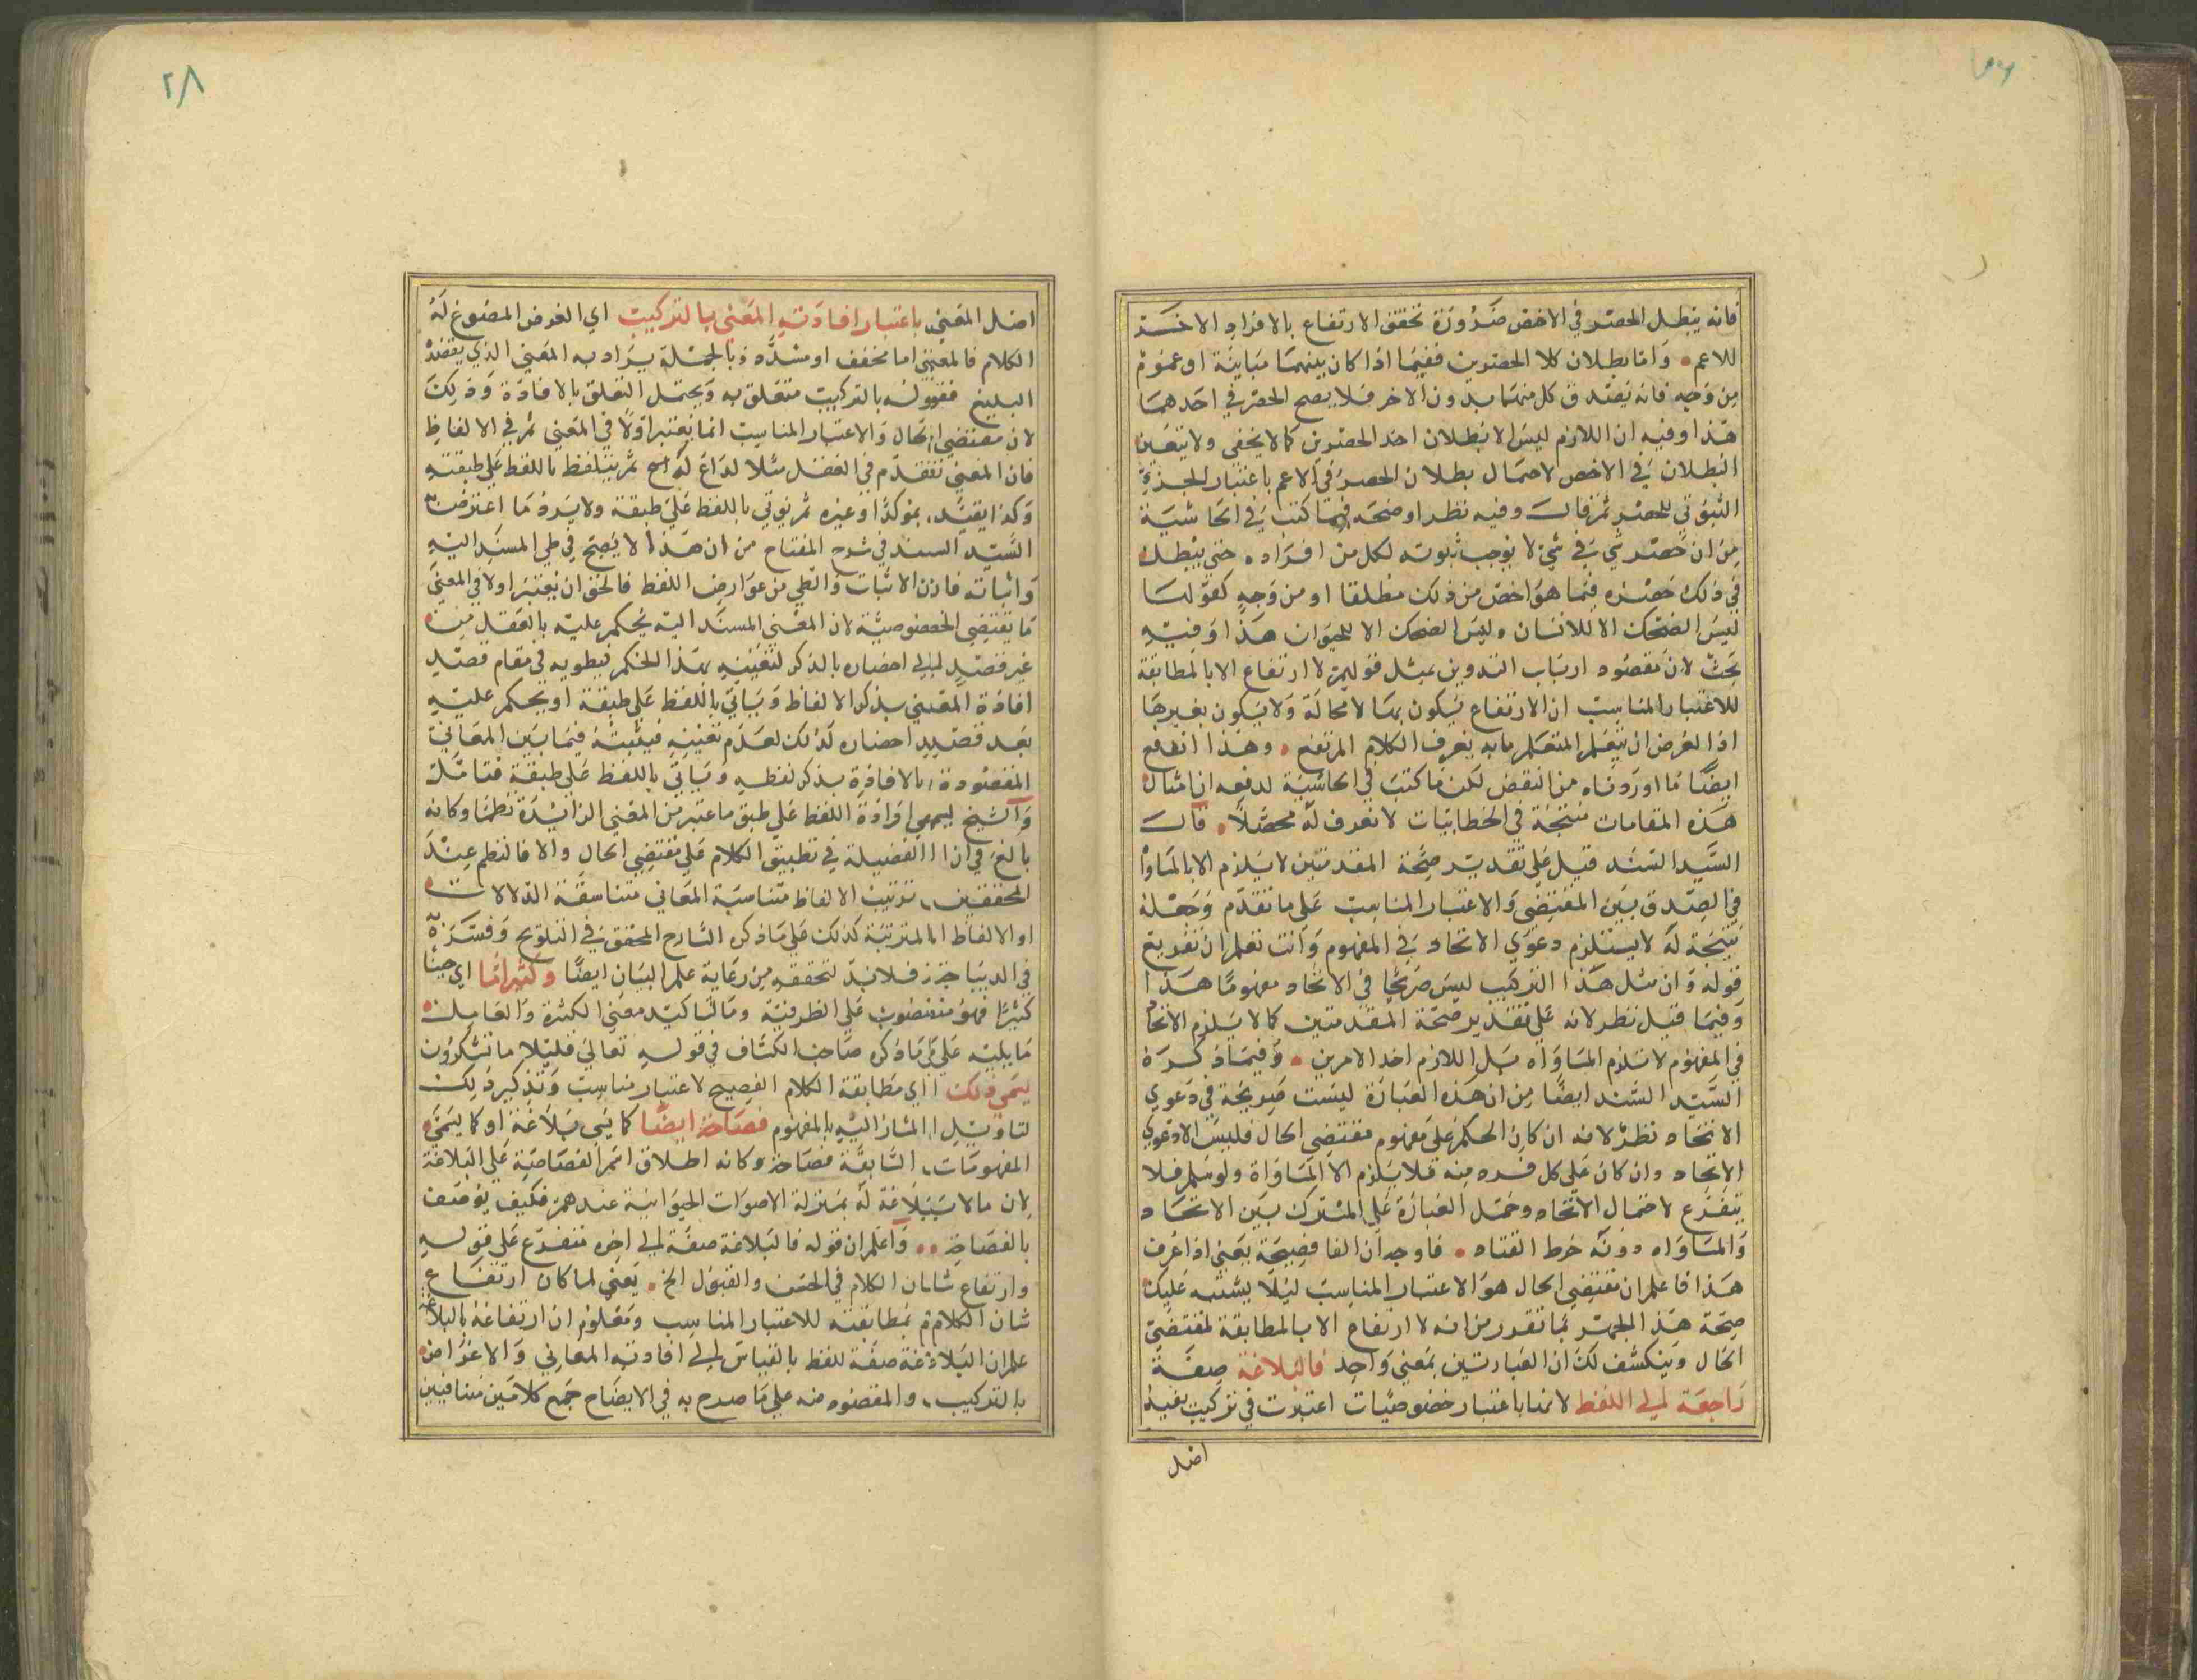 فانه يبطل الحصر في الاخص ضرورة تحقق الارتفاع بالافراد الاخر
للاعم • واما بطلان كلا الحصرين ففيما اذا كان بينهما مباينة او عموم
من وجه فانه يصدق كل منهما بدون الاخر فلا يصح الحصر في احدهما
هذا وفيه ان اللازم ليس الا بطلان احد الحصرين كما لا يخفى ولا يتعين
البطلان في الاخص لاحتمال بطلان الحصر في الاعم باعتبار الجزء
الثبوتي للحصر ثم قال وفيه نظر اوضحه فيما كتب في الحاشية
من ان حصر شئ في شئ لا يوجب ثبوته لكل من افراده حتى يبطل
في ذلك حصره فيما هو اخص من ذلك مطلقا او من وجه كقولنا
ليس الضحك الا للانسان وليس الضحك الا للحيوان هذا وفيه
بحث لان مقصود ارباب التدوين بمثل قولهم لا ارتفاع الا بالمطابقة
للاعتبار المناسب ان الارتفاع يكون بها لا محالة ولا يكون بغيرها
اذ الغرض ان يتعلم المتعلم ما به يعرف الكلام المرتفع • وهذا اندفع
ايضا ما اوردناه من النقض لكن ما كتب في الحاشية لدفعه ان امثال
هذه المقامات منتجة في الخطابيات لا نعرف له محصلا • قال
السيد السند قيل على تقدير صحة المقدمتين لا يلزم الا بالمساواة
في الصدق بين المقتضى والاعتبار المناسب على ما تقدم وجعله
نتيجة له لا يستلزم دعوى الاتحاد في المفهوم وانت تعلم ان تفريع
قوله وان مثل هذا التركيب ليس صريحا في الاتحاد مفهوما هذا
وفيما قيل نظر لانه على تقدير صحة المقدمتين كما لا يلزم الاتحاد
في المفهوم لا تلزم المساواه بل اللازم احد الامرين • وفيما ذكره
السيد السند ايضا من ان هذه العبارة ليست صريحة في دعوى
الاتحاد نظر لانه ان كان الحكم على مفهوم مقتضى الحال فليس الا دعوى
الاتحاد وان كان على كل فرد منه فلا يلزم الا المساواة ولو سلم فلا
يتفرع لاحتمال الاتحاد وحمل العبارة على المشترك بين الاتحاد
والمساواه دونه خرط القتاد • فاوجه ان الفا فصيحة يعني اذا عرف
هذا فاعلم ان مقتضى الحال هو الاعتبار المناسب ليلا يشتبه عليك
صحة هذا الحصر بما تقرر من انه لا ارتفاع الا بالمطابقة لمقتضى
الحال وينكشف لك ان العبارتين بمعنى واحد فالبلاغة صفة
راجعة الى اللفظ لانها باعتبار خصوصيات اعتبرت في تركيب يفيد
اصل
٢٨
اصل المعنى باعتبار افادته المعنى بالتركيب اي الغرض المصوغ له
الكلام فالمعنى اما مخفف او مشدد وبالجملة يراد به المعنى الذي يقصده
البليغ فقوله بالتركيب متعلق به ويحتمل التعلق بالافادة وذلك
لان مقتضى الحال والاعتبار المناسب انما يعتبر اولا في المعنى ثم في الالفاظ
فان المعنى يتقدم في العقل مثلا لداع له ثم يتلفظ باللفظ على طبقته
وكذا يقيد بمؤكد او غيره ثم يوتي باللفظ على طبقه ولا يرد ما اعترض به
السيد السند في شرح المفتاح من ان هذا لا يصح في طي المسند اليه
واثباته فان الاثبات والطي من عوارض اللفظ فالحق ان يعتبر اولا في المعنى
ما يقتضى الخصوصية لان المعنى المسند اليه يحكم عليه بالعقل من
غير قصد الى احضاره بالذكر لتعينه بهذا الحكم فيطويه في مقام قصد
افادة المعنى بذكر الالفاظ وياتي باللفظ على طبقه او يحكم عليه
بعد قصد احضاره لذلك لعدم تعينه فيثبته فيما بين المعاني
المقصودة بالافادة بذكر لفظه وياتي باللفظ على طبقه فتامل
والشيخ يسمي افادة اللفظ على طبق ما عتبر من المعنى الزائدة نظما وكانه
بالغ في اذا الفضيلة في تطبيق الكلام على مقتضى الحال والا فالنظم عند
المحققين ترتيب الالفاظ متناسبة المعاني متناسقة الدلالات
او الالفاظ المترتبة كذلك على ما ذكره الشارح المحقق في التلويح وفسره
في الديباجة فلا بد لتحققه من رعاية علم البيان ايضا وكثيرا ما اي حينا
كثيرا فهو منصوب على الظرفية وما لتاكيد معنى الكثرة والعامل
ما يليه على ما ذكره صاحب الكشاف في قوله تعالى قليلا ما تشكرون
يسمى ذلك اي مطابقة الكلام الفصيح لاعتبار مناسب وتذكير ذلك
لتاويل المشار اليه بالمفهوم فصاحة ايضا كما يسمى بلاغة او كما يسمى
المفهومات السابقة فصاحة وكانه اطلاق اسم الفصاحة على البلاغة
لان ما لا بلاغة له بمنزلة الاصوات الحيوانية عندهم فكيف يوصف
بالفصاحة •• واعلم ان قوله فالبلاغة صفة الى اخره متفرع على قوله
وارتفاع شان الكلام في الحسن والقبول الخ • يعني لما كان ارتفاع
شان الكلام بمطابقته للاعتبار المناسب ومعلوم ان ارتفاعه بالبلاغة
علم ان البلاغة صفة للفظ بالقياس الى افادته المعاني والاغراض
بالتركيب والمقصود منه على ما صرح به في الايضاح جمع كلامين متنافيين